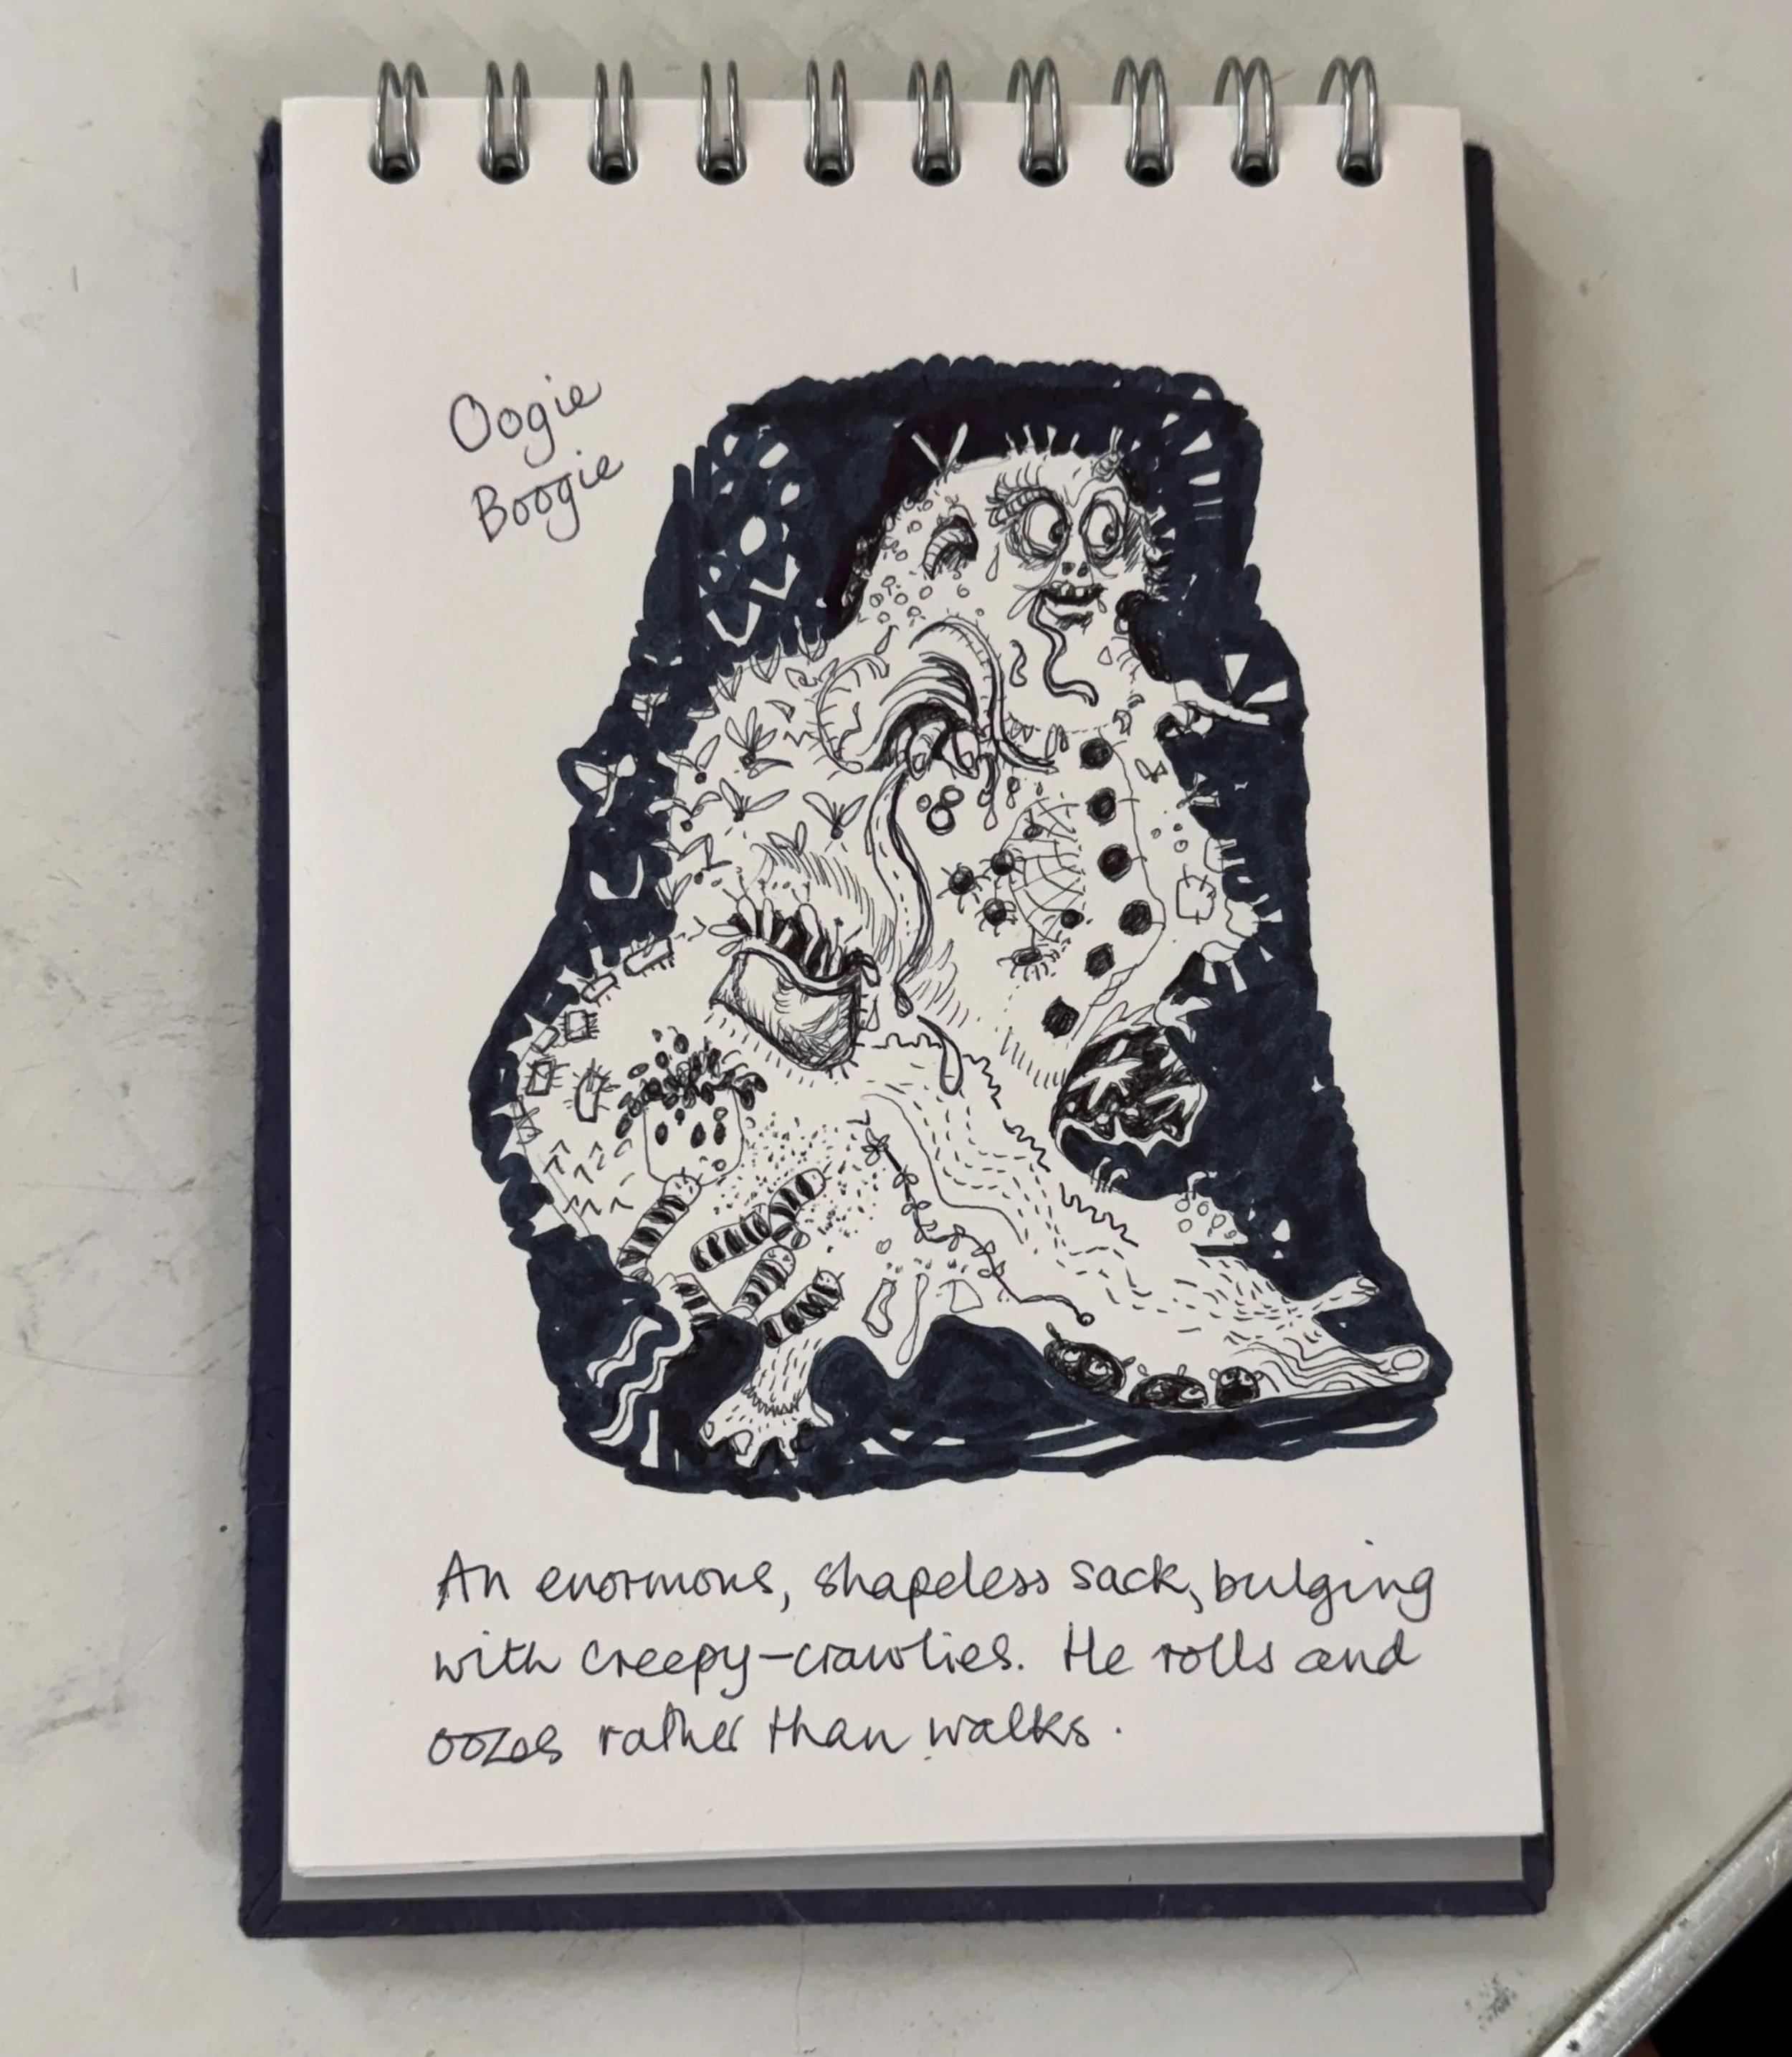 Oogie
Boogie
An enormous, shapeless sack, bulging
with creepy-crawlies. He rolls and
oozes rather than walks.